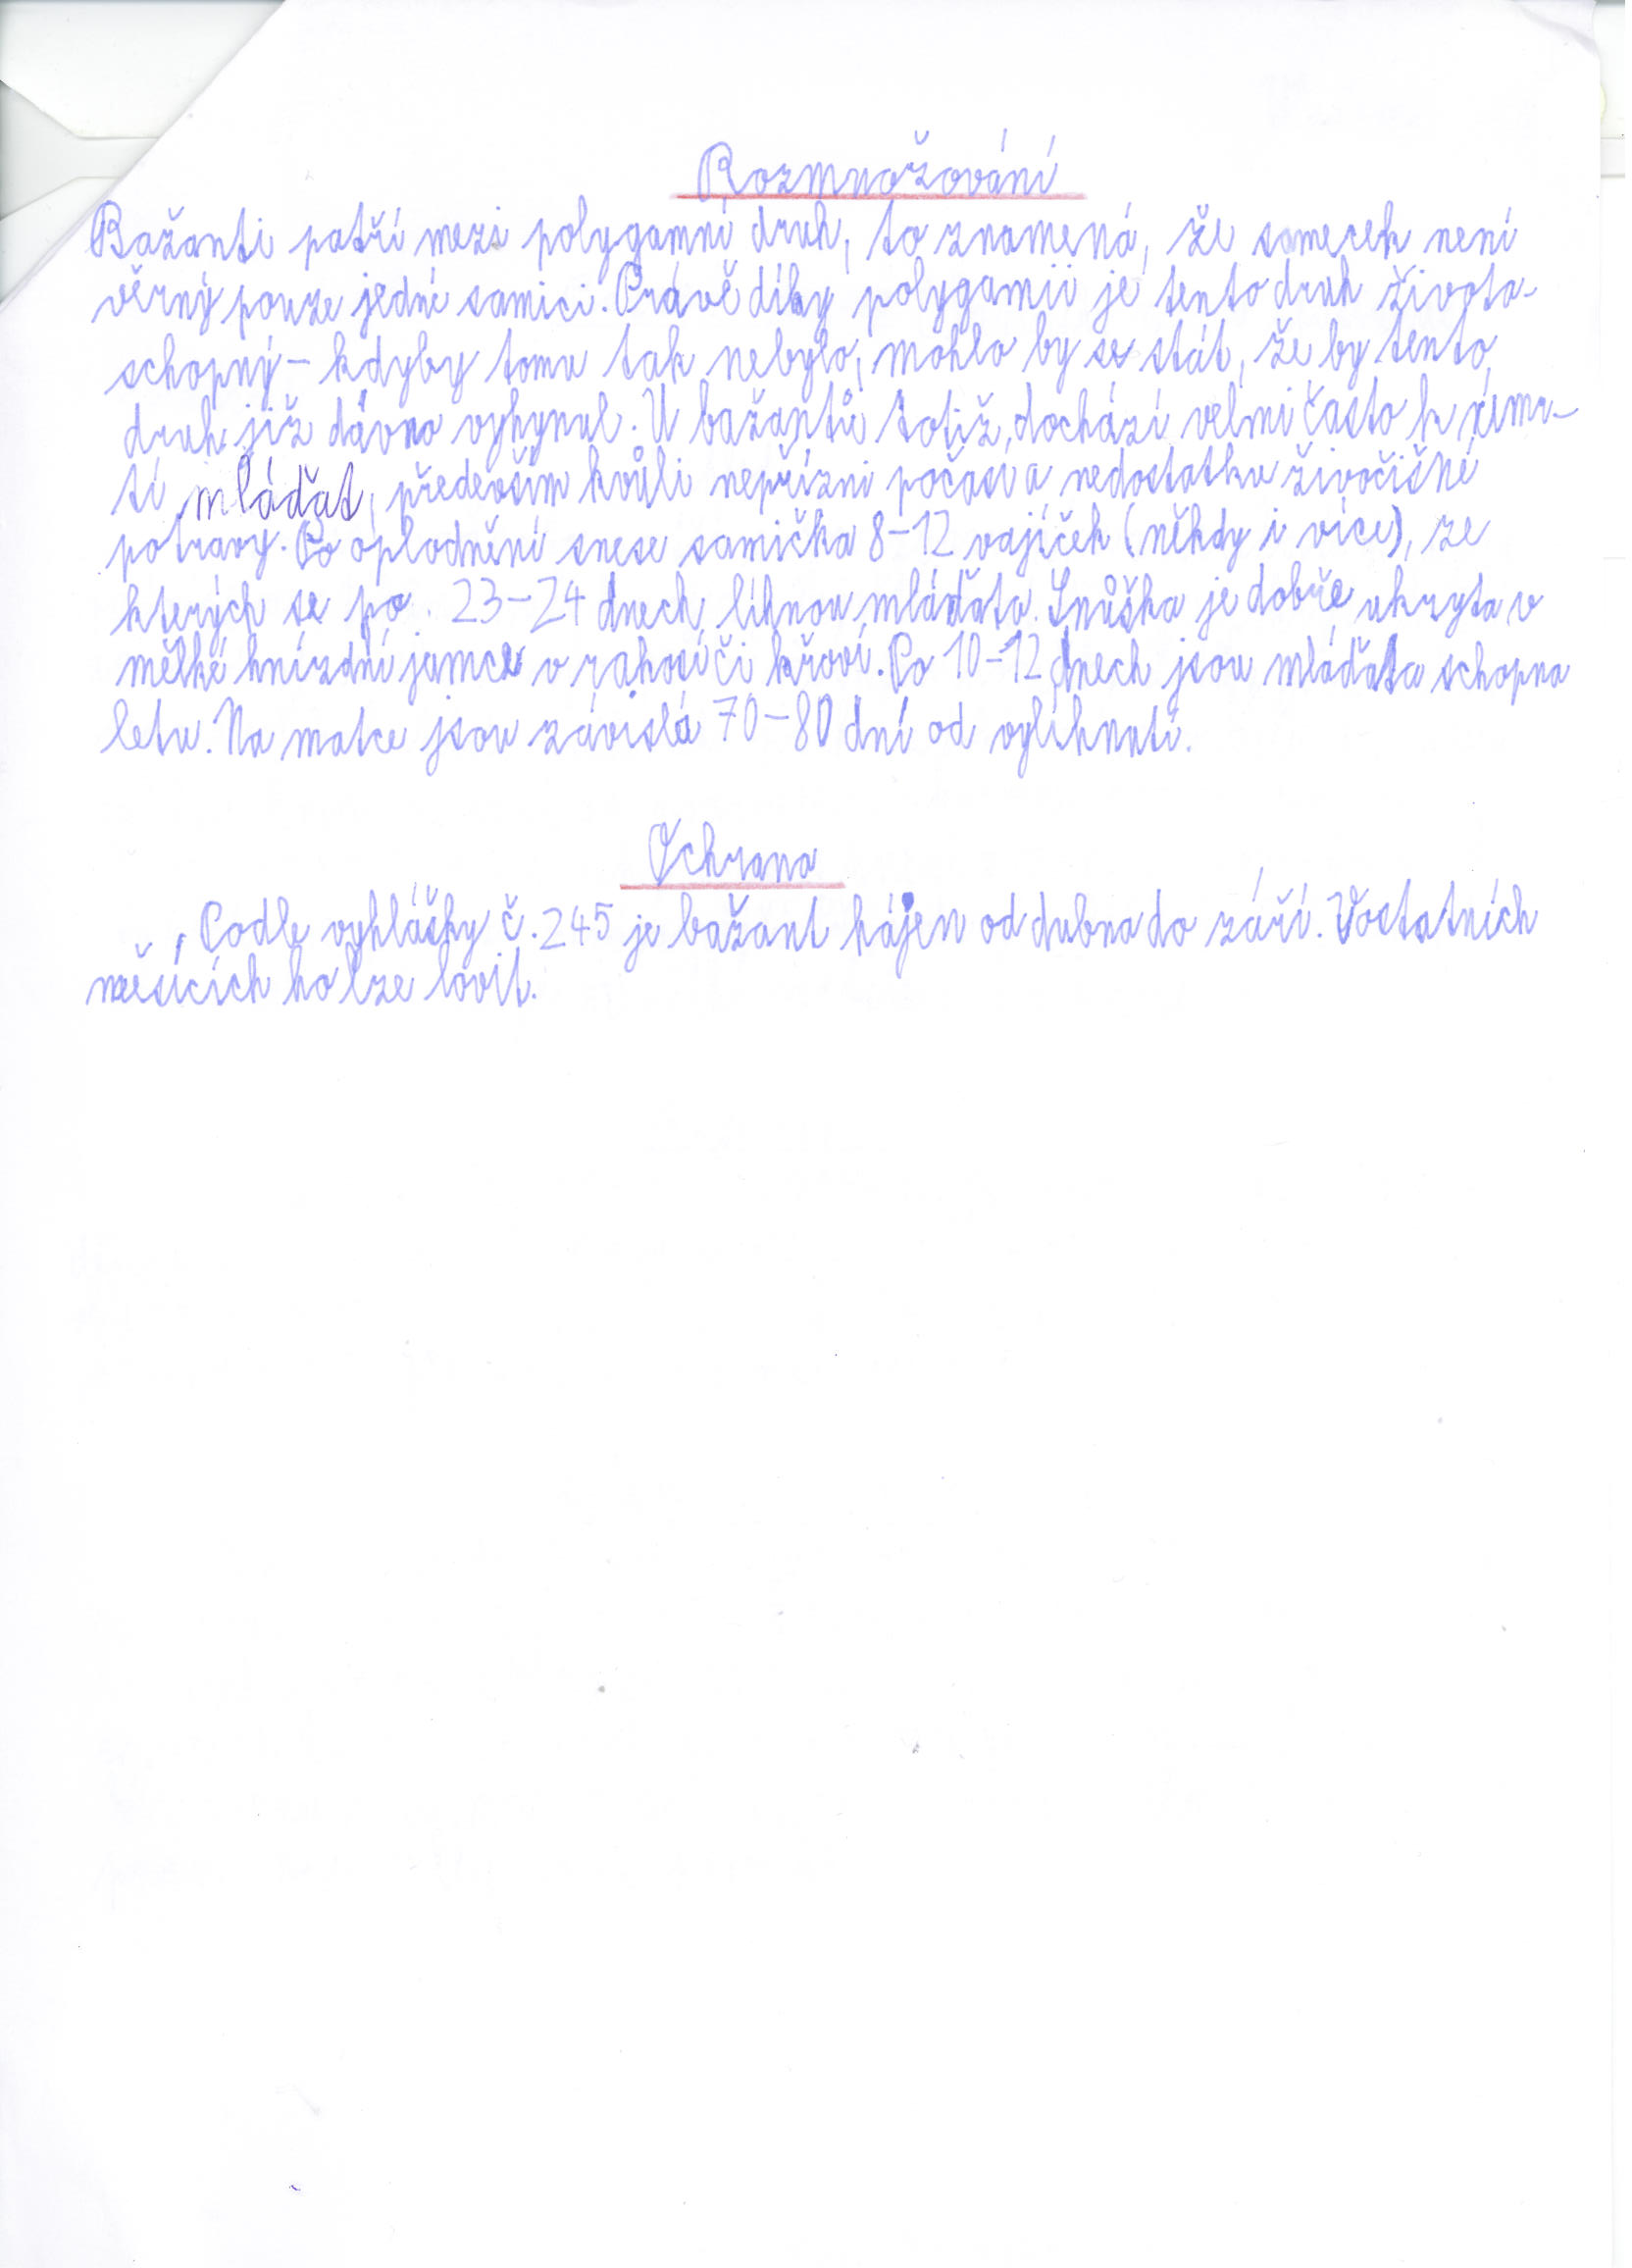 Rozmnožování
Bažanti patří mezi polygamní druh, to znamená, že sameček není
věrný pouze jedné samici. Právě díky polygamii je tento druh života-
schopný – kdyby tomu tak nebylo, mohlo by se stát, že by tento
druh již dávno vyhynul. U bažantů totiž dochází velmi často k úmr-
tí mláďat, především kvůli nepřízni počasí a nedostatku živočišné
potravy. Po oplodnění snese samička 8–12 vajíček (někdy i více), ze
kterých se po 23–24 dnech líhnou mláďata. Snůška je dobře ukryta v
mělké hnízdní jamce v rákosí či křoví. Po 10–12 dnech jsou mláďata schopna
letu. Na matce jsou závislá 70–80 dní od vylíhnutí.
Ochrana
Podle vyhlášky č. 245 je bažant hájen od dubna do září. V ostatních
měsících ho lze lovit.